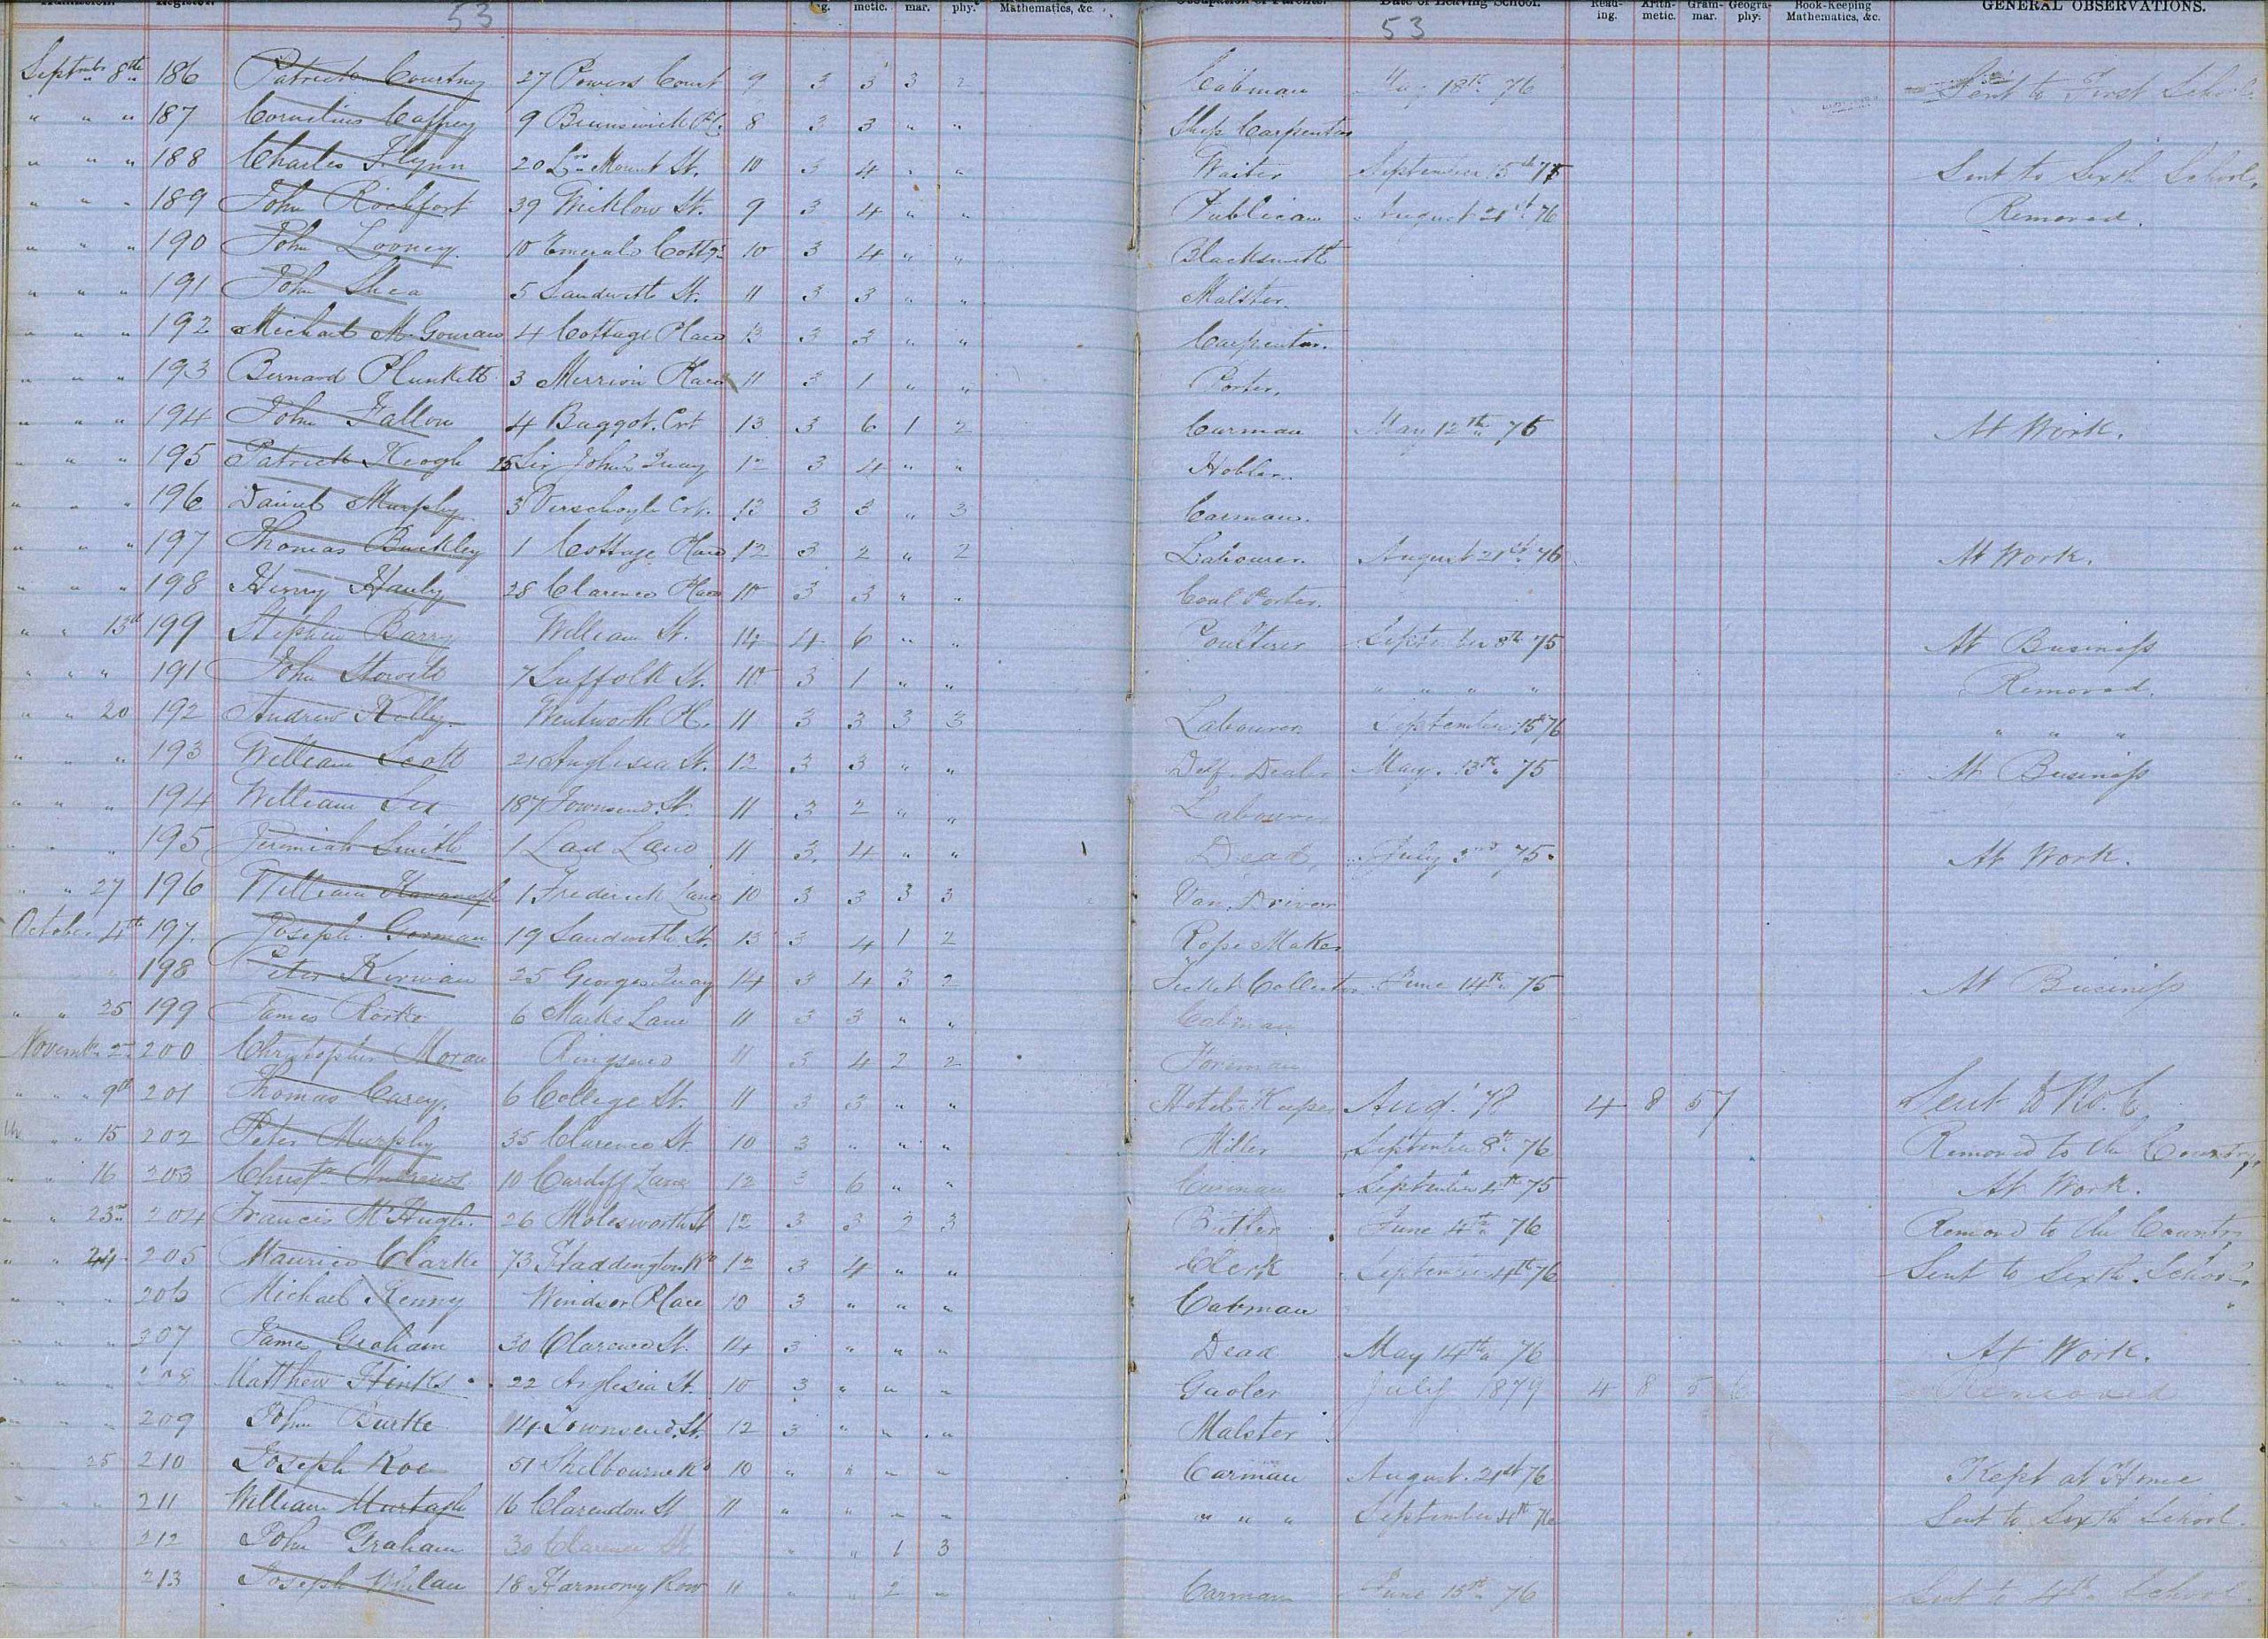 53 Mathematics, &c. 53 Arith-metic. Gram-mar. Geogra-phy. Book-Keeping Mathematics, &c. GENERAL OBSERVATIONS.
Septmbr 8th 186 Patrick Courtney 27 Powers Court 9 3 3 3 2 Cabman May 18th 76 Sent to First School
" " " 187 Cornelius Caffrey 9 Brunswick 8 3 3 " " Ship Carpenter
" " " 188 Charles Flynn 20 Lr Mount St. 10 3 4 " " Waiter September 15th 75 Sent to Sixth School
" " " 189 John Rochfort 39 Wicklow St. 9 3 4 " " Publican August 21st 76 Removed.
" " " 190 John Looney 10 Emerald Cottgs 10 3 4 " " Blacksmith
" " " 191 John Shea 5 Sandwith St. 11 3 3 " " Malster.
" " " 192 Michael McGouran 4 Cottage Place 13 3 3 " " Carpenter.
" " " 193 Bernard Plunkett 3 Merrion Place 11 3 1 " " Porter.
" " " 194 John Fallon 4 Baggot Crt 13 3 6 1 2 Carman May 12th 76 At Work.
" " " 195 Patrick Keogh 15 Sir John's Quay 12 3 4 " " Hobler.
" " " 196 Daniel Murphy 3 Verschoyle Crt. 13 3 3 " 3 Carman.
" " " 197 Thomas Buckley 1 Cottage Place 12 3 2 " 2 Labourer. August 21st 76 At Work.
" " " 198 Henry Hanly 28 Clarence Place 10 3 3 " " Coal Porter.
" " 13th 199 Stephen Barry William St. 14 4 6 " " Poulterer September 8th 75 At Business
" " " 191 John 7 Suffolk St. 10 3 1 " " " " " " Removed.
" " 20 192 Andrew Rolly Wentworth Pl. 11 3 3 3 3 Labourer September 15th 76 " " "
" " " 193 William Scott 21 Anglesea St. 12 3 3 " " Delf Dealer May 13th 75 At Business
" " " 194 William Lee 187 Townsend St. 11 3 2 " " Labourer
" " " 195 Jeremiah Smith 1 Lad Lane 11 3 4 " " Dead, July 3rd 75. At Work.
" " 27 196 William Kavanagh 1 Frederick Lane 10 3 3 3 3 Van Driver
October 4th 197 Joseph Gorman 19 Sandwith St. 13 3 4 1 2 Rope Maker
" 198 Peter Kirwan 25 Georges Quay 14 3 4 3 2 Ticket Collector June 14th 75 At Business
" " 25 199 James Rorke 6 Marks Lane 11 3 3 " " Cabman
Novembr 2 200 Christopher Moran Ringsend 11 3 4 2 2 Foreman
" " 9th 201 Thomas Carey. 6 College St. 11 3 3 " " Hotel-Keeper Aug. '78 4 8 5 7 Sent to
" " 15 202 Peter Murphy 35 Clarence St. 10 3 " " " Miller September 8th 76 Removed to the Country
" " 16 203 Christr Andrews 10 Cardiff Lane 12 3 6 " " Carman September 4th 75 At Work.
" " 23rd 204 Francis McHugh. 26 Molesworth St 12 3 3 2 3 Butler June 4th 76 Removed to the Country
" " 24 205 Maurice Clarke 73 Haddington Rd 12 3 4 " " Clerk September 4th 76 Sent to Sixth School
" " " 206 Michael Kenny Windsor Place 10 3 " " " Cabman
" " " 207 James Graham 30 Clarence St. 14 3 " " " Dead May 14th 76 At Work.
" " " 208 Matthew Hinks 22 Anglesia St. 10 3 " " " Gaoler July 1879 4 8 5 6 Removed
" " " 209 John Burke 14 Townsend St. 12 3 " " " Malster
" " 25 210 Joseph Roe 51 Shelbourne Rd 10 " " " " Carman August 21st 76 Kept at Home
" " " 211 William Murtagh 16 Clarendon St 11 " " " " " " " September 4th 76 Sent to Sixth School.
212 John Graham 30 Clarence St. " " 1 3
213 Joseph Whelan 18 Harmony Row 11 " " 2 " Carman June 15th 76 Sent to 4th School